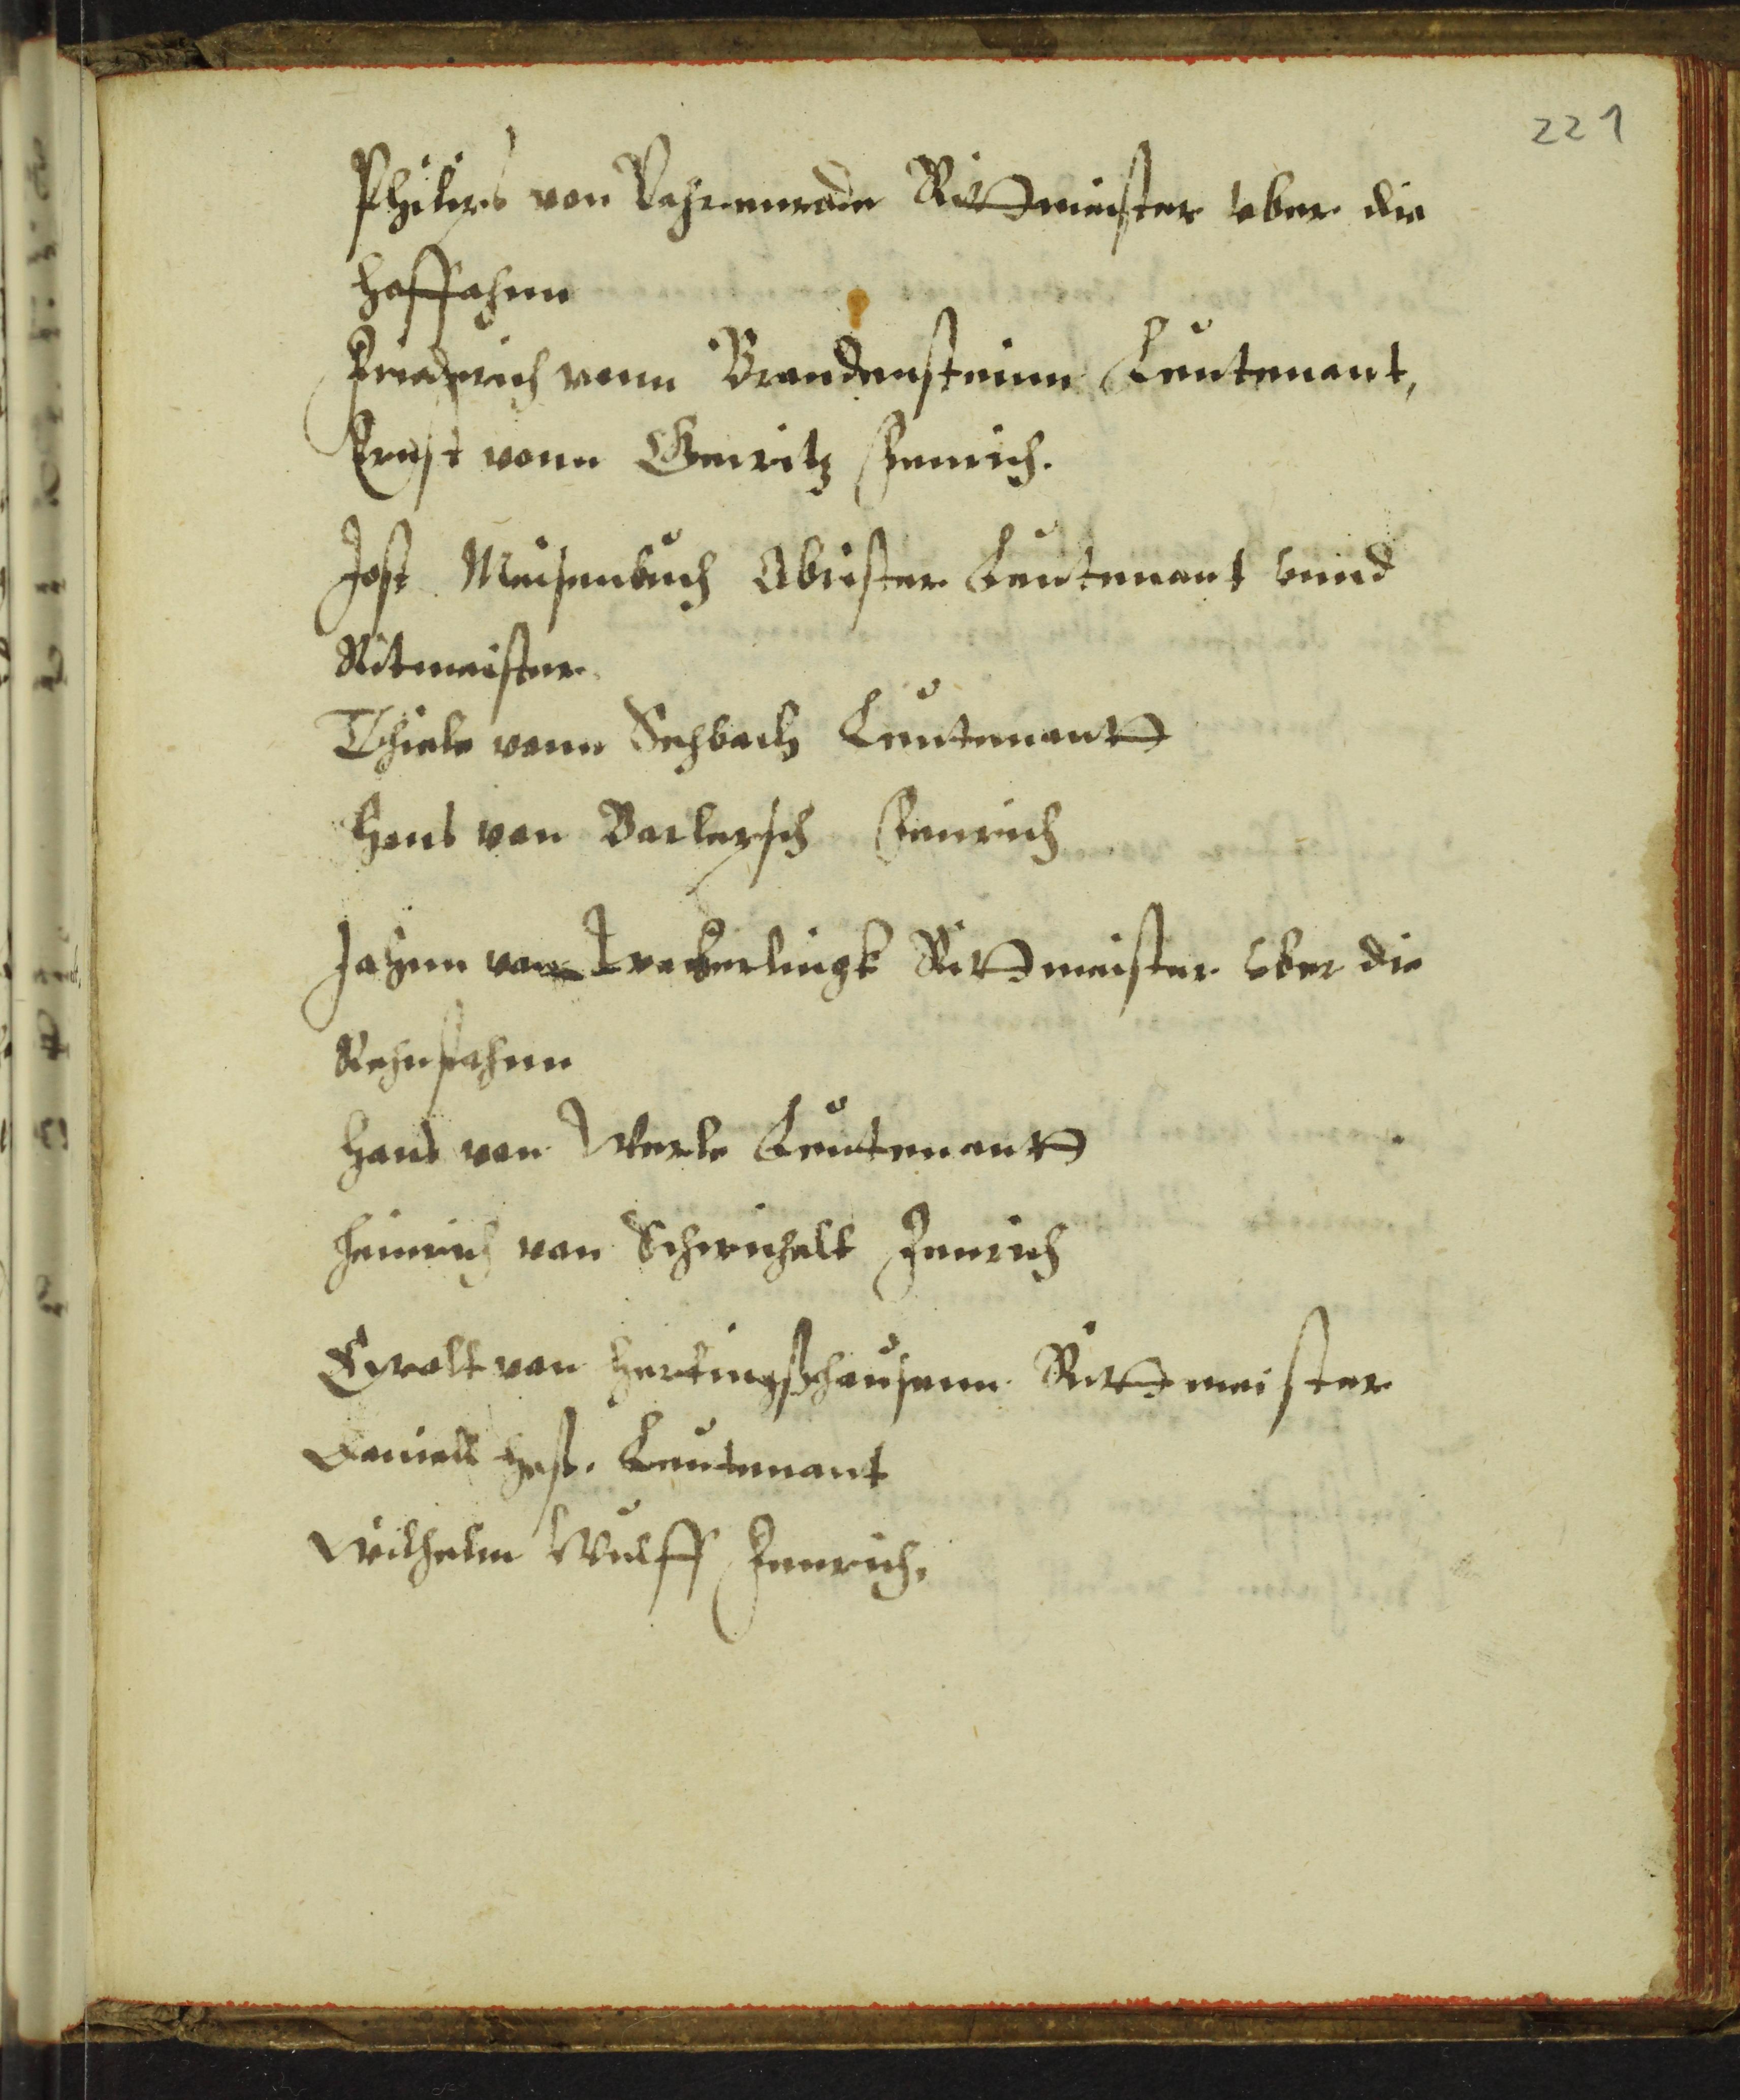 221
Philips von Rahenrode Rittmeister vber die
hoffahnn
Friedrich vonn Brandensteinn Leutenant,
Ernst vonn Geuritz Fenrich.
Jost Meisenbuch Obrister Leutenant vnnd
Ritmeister
Thiele vonn Sehbach Leutenantt
Hans von Barlepsch Fenrich
Johnn von Vrekerlingk Rittmeister vber die
Rehnfahnn
Hans von Werle Leutenantt
Heinrich von Schwichelt Fenrich
Ewalt von Hertingßhausenn Rittmeister
Daniell Heß. Leutenant
Wilhelm Wulff Fenrich.